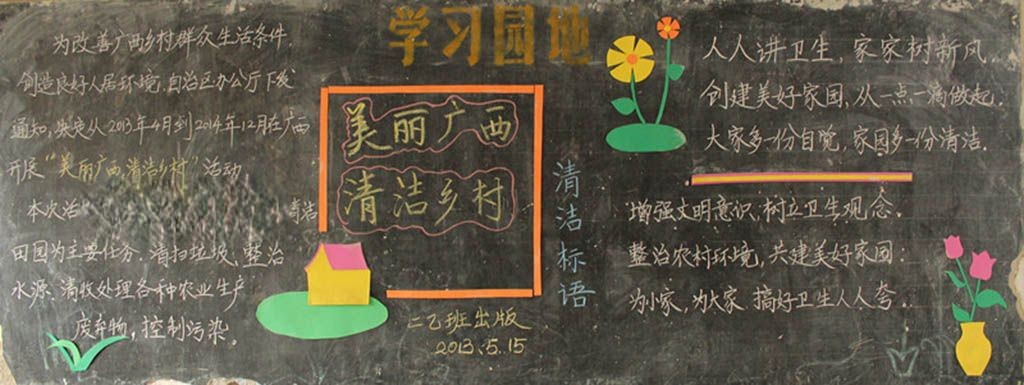 学习园地
为改善广西乡村群众生活条件,
创造良好人居环境,自治区办公厅下发
通知,决定从2013年4月到2014年12月在广西
开展“美丽广西清洁乡村”活动
本次活
清洁
田园为主要任务。清扫垃圾,整治
水源、清收处理各种农业生产
废弃物,控制污染。
美丽广西
清洁乡村
二乙班出版
2013.5.15
清洁标语
人人讲卫生,家家树新风。
创建美好家园,从一点一滴做起。
大家多一份自觉,家园多一份清洁。
增强文明意识,树立卫生观念。
整治农村环境,共建美好家园;
为小家,为大家,搞好卫生人人夸。